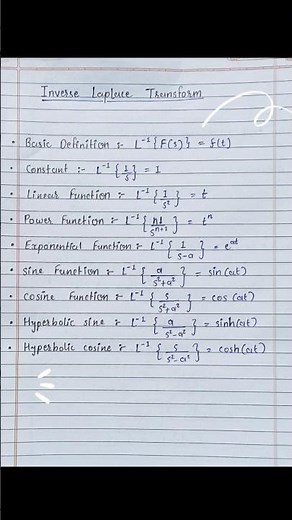 Inverse Laplace Transform
• Basic Definition :- L⁻¹{F(s)} = f(t)
• Constant :- L⁻¹{1/s} = 1
• Linear Function :- L⁻¹{1/s²} = t
• Power Function :- L⁻¹{n!/sⁿ⁺¹} = tⁿ
• Exponential Function :- L⁻¹{1/s-a} = eᵃᵗ
• Sine Function :- L⁻¹{a/s²+a²} = sin(at)
• Cosine Function :- L⁻¹{s/s²+a²} = cos(at)
• Hyperbolic sine :- L⁻¹{a/s²-a²} = sinh(at)
• Hyperbolic cosine :- L⁻¹{s/s²-a²} = cosh(at)